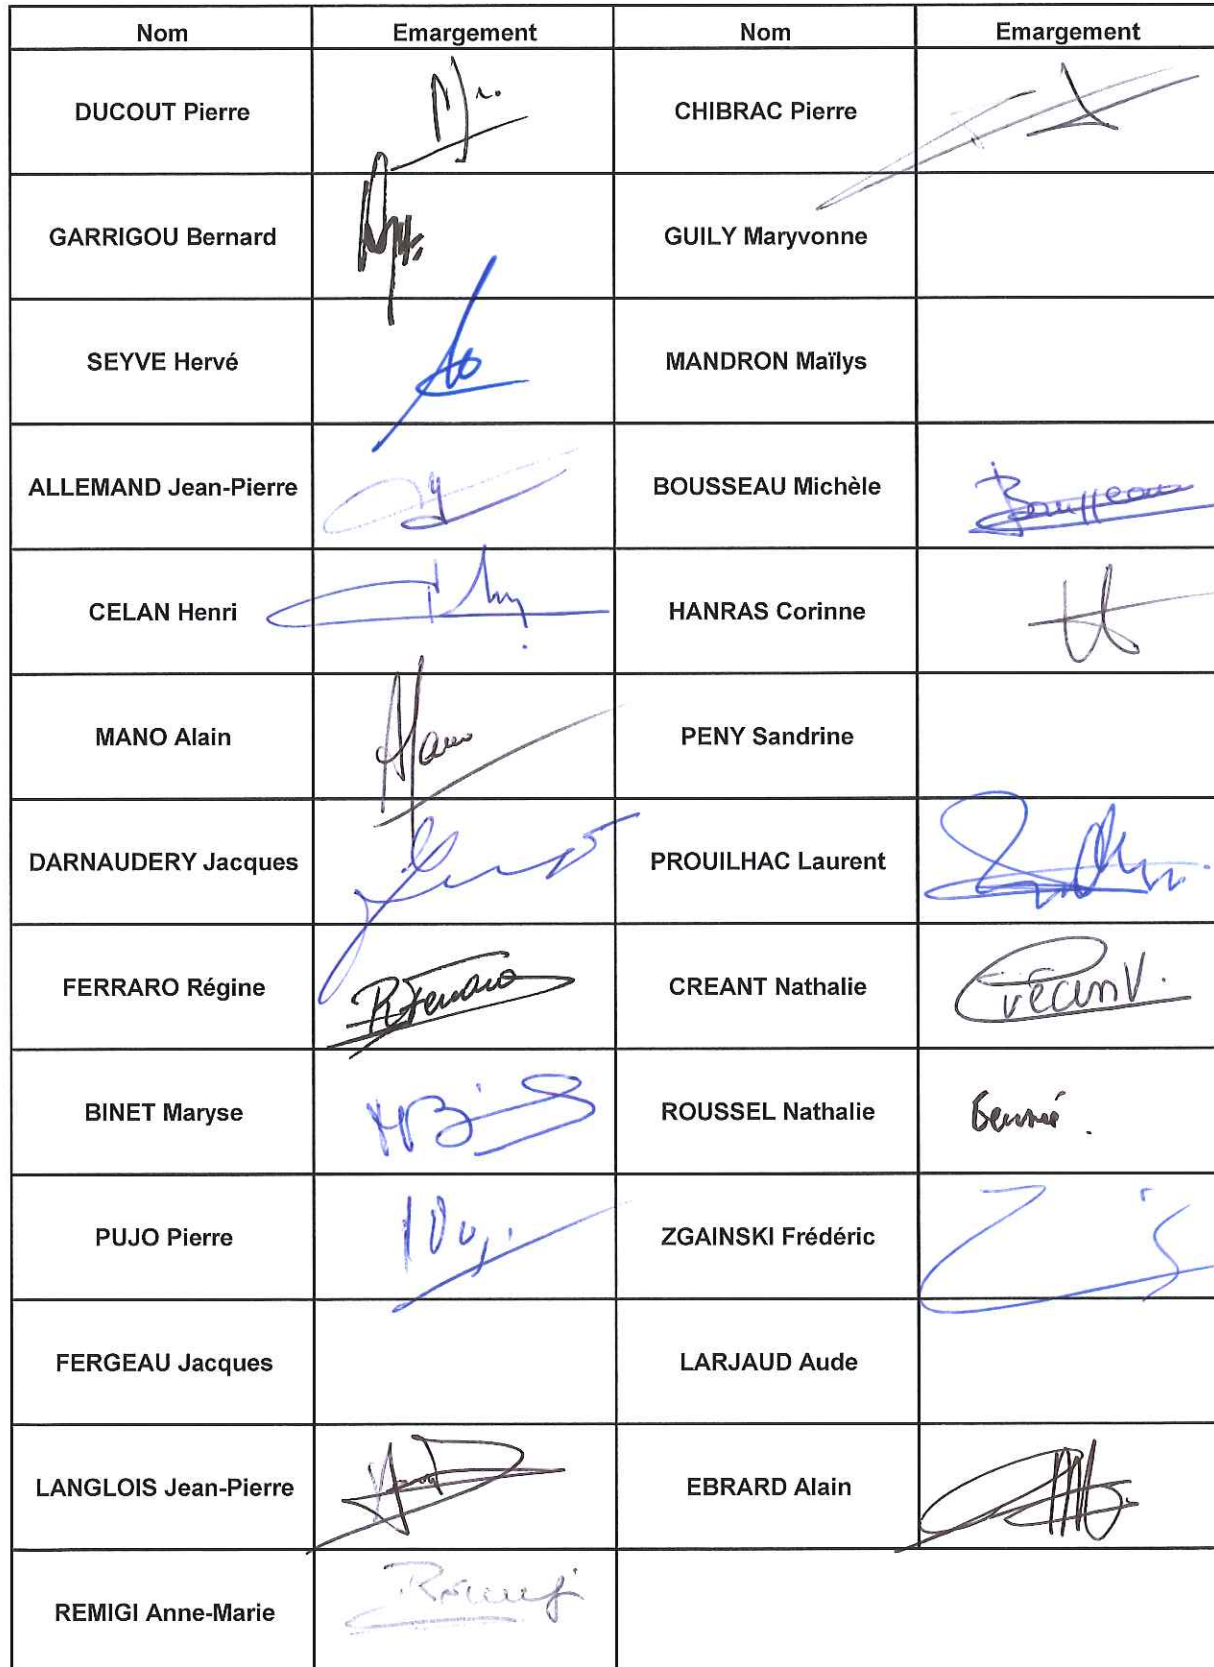 Nom Emargement Nom Emargement
DUCOUT Pierre CHIBRAC Pierre
GARRIGOU Bernard GUILY Maryvonne
SEYVE Hervé MANDRON Maïlys
ALLEMAND Jean-Pierre BOUSSEAU Michèle Bousseau
CELAN Henri HANRAS Corinne
MANO Alain Mano PENY Sandrine
DARNAUDERY Jacques PROUILHAC Laurent
FERRARO Régine R Ferraro CREANT Nathalie
BINET Maryse ROUSSEL Nathalie
PUJO Pierre ZGAINSKI Frédéric
FERGEAU Jacques LARJAUD Aude
LANGLOIS Jean-Pierre EBRARD Alain
REMIGI Anne-Marie Remigi